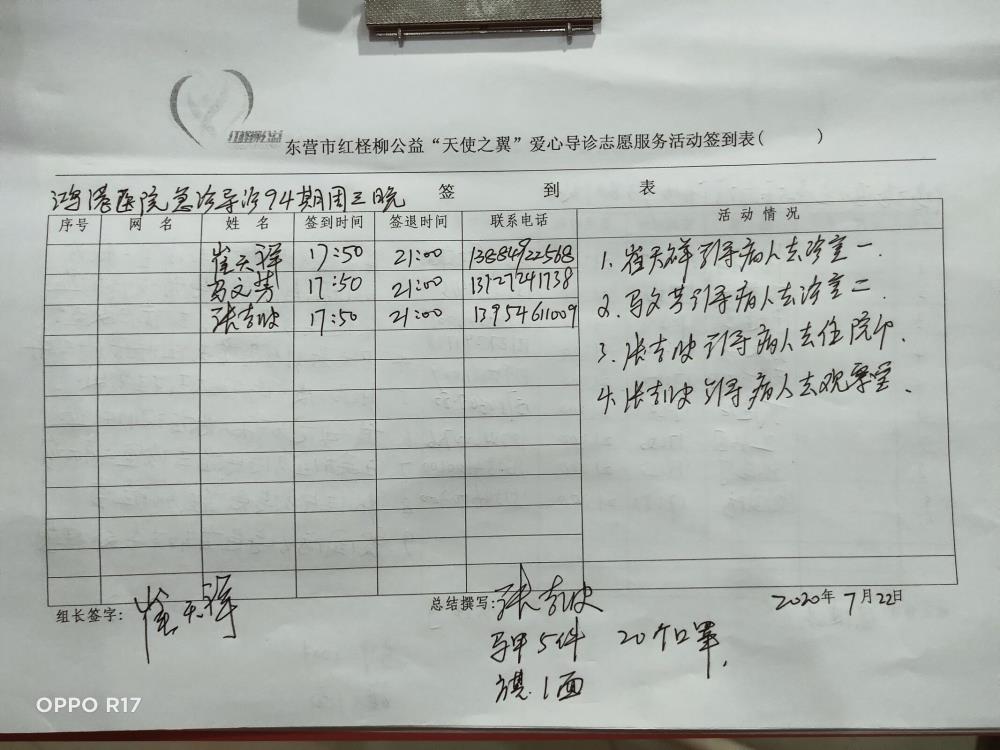 红柽柳公益
东营市红柽柳公益“天使之翼”爱心导诊志愿服务活动签到表( )
签 到 表
鸿港医院急诊导诊94期周三晚
序号 网 名 姓 名 签到时间 签退时间 联系电话 活动情况
崔天祥 17:50 21:00 13884922568
马文芳 17:50 21:00 13727241738
张吉波 17:50 21:00 13954611009
1. 崔天祥引导病人去诊室一.
2. 马文芳引导病人去诊室二.
3. 张吉波引导病人去住院部.
4. 张吉波引导病人去观察室.
组长签字: 崔天祥
总结撰写: 张吉波
2020年7月22日
马甲5件 20个口罩.
旗.1面
OPPO R17